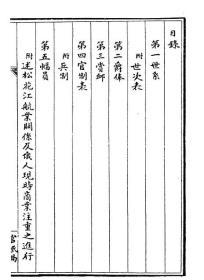 目錄
第一世系
附世次表
第二爵俸
第三賞卹
第四官制表
附兵制
第五幅員
附述松花江航業關係及俄人現時商業注重之進行